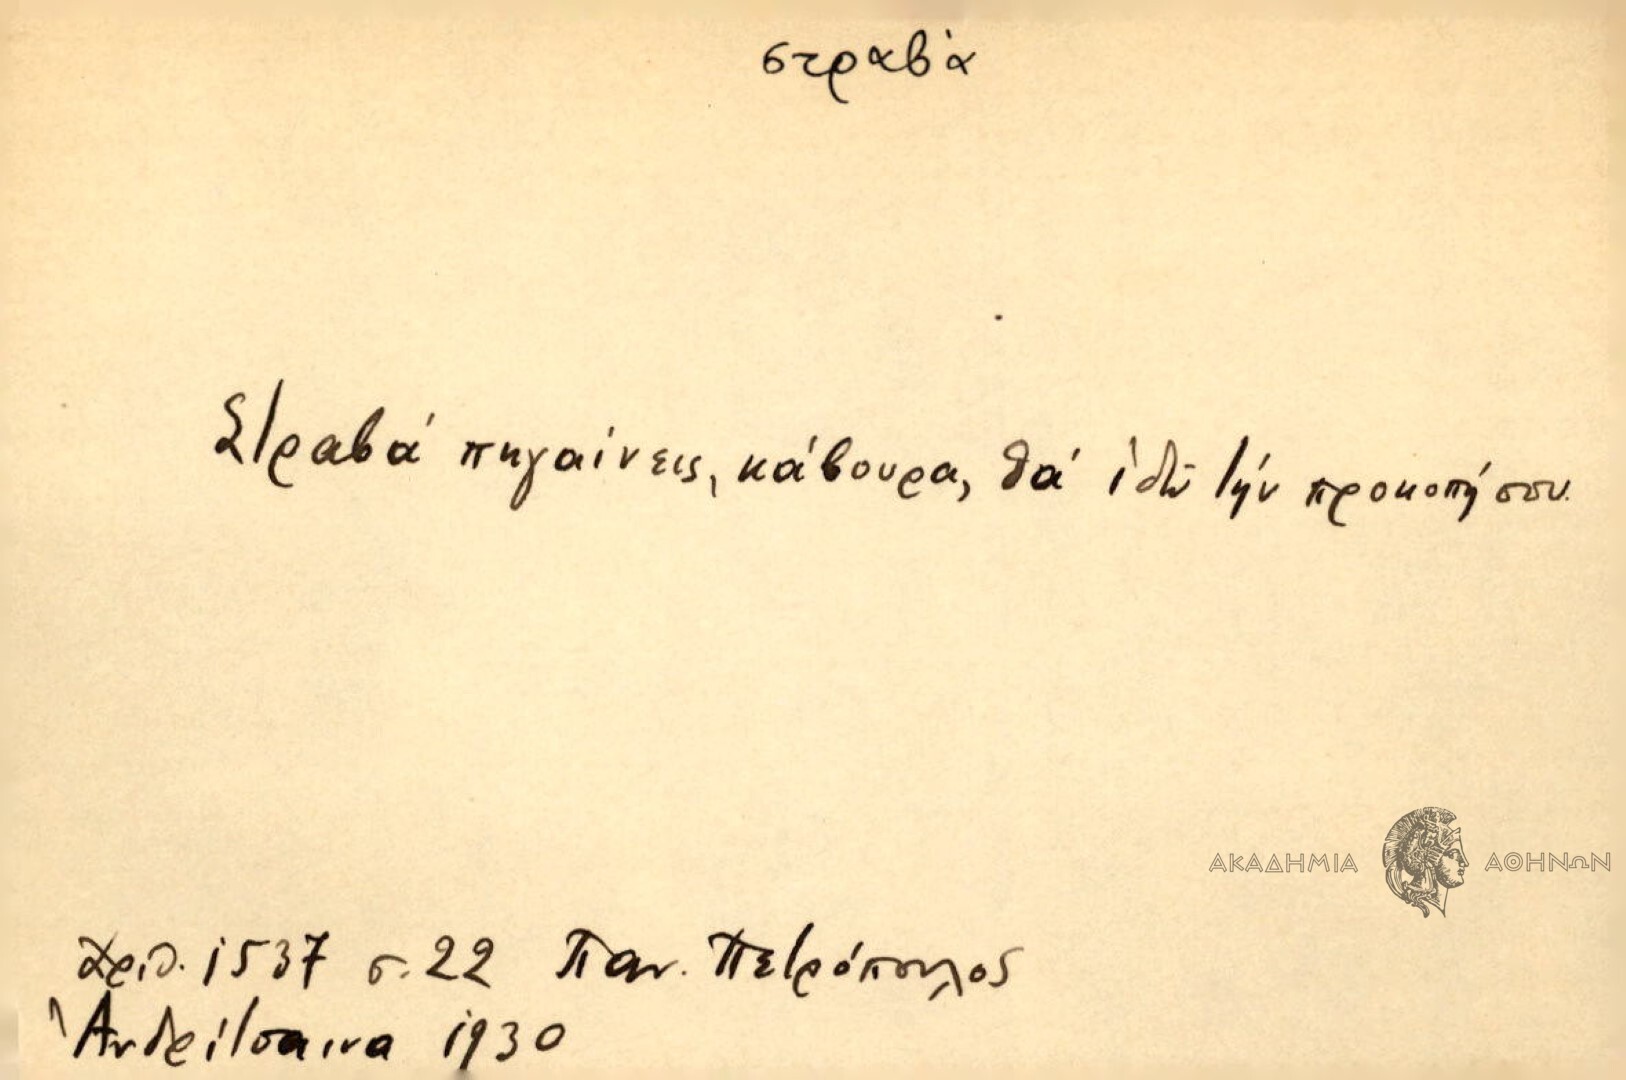 στραβά
Στραβά πηγαίνεις, κάβουρα, θά ἰδῶ τήν προκοπή σου.
ΑΚΑΔΗΜΙΑ ΑΘΗΝΩΝ
Ἀριθ. 1537 σ. 22 Παν. Πετρόπουλος
Ἀνδρίτσαινα 1930